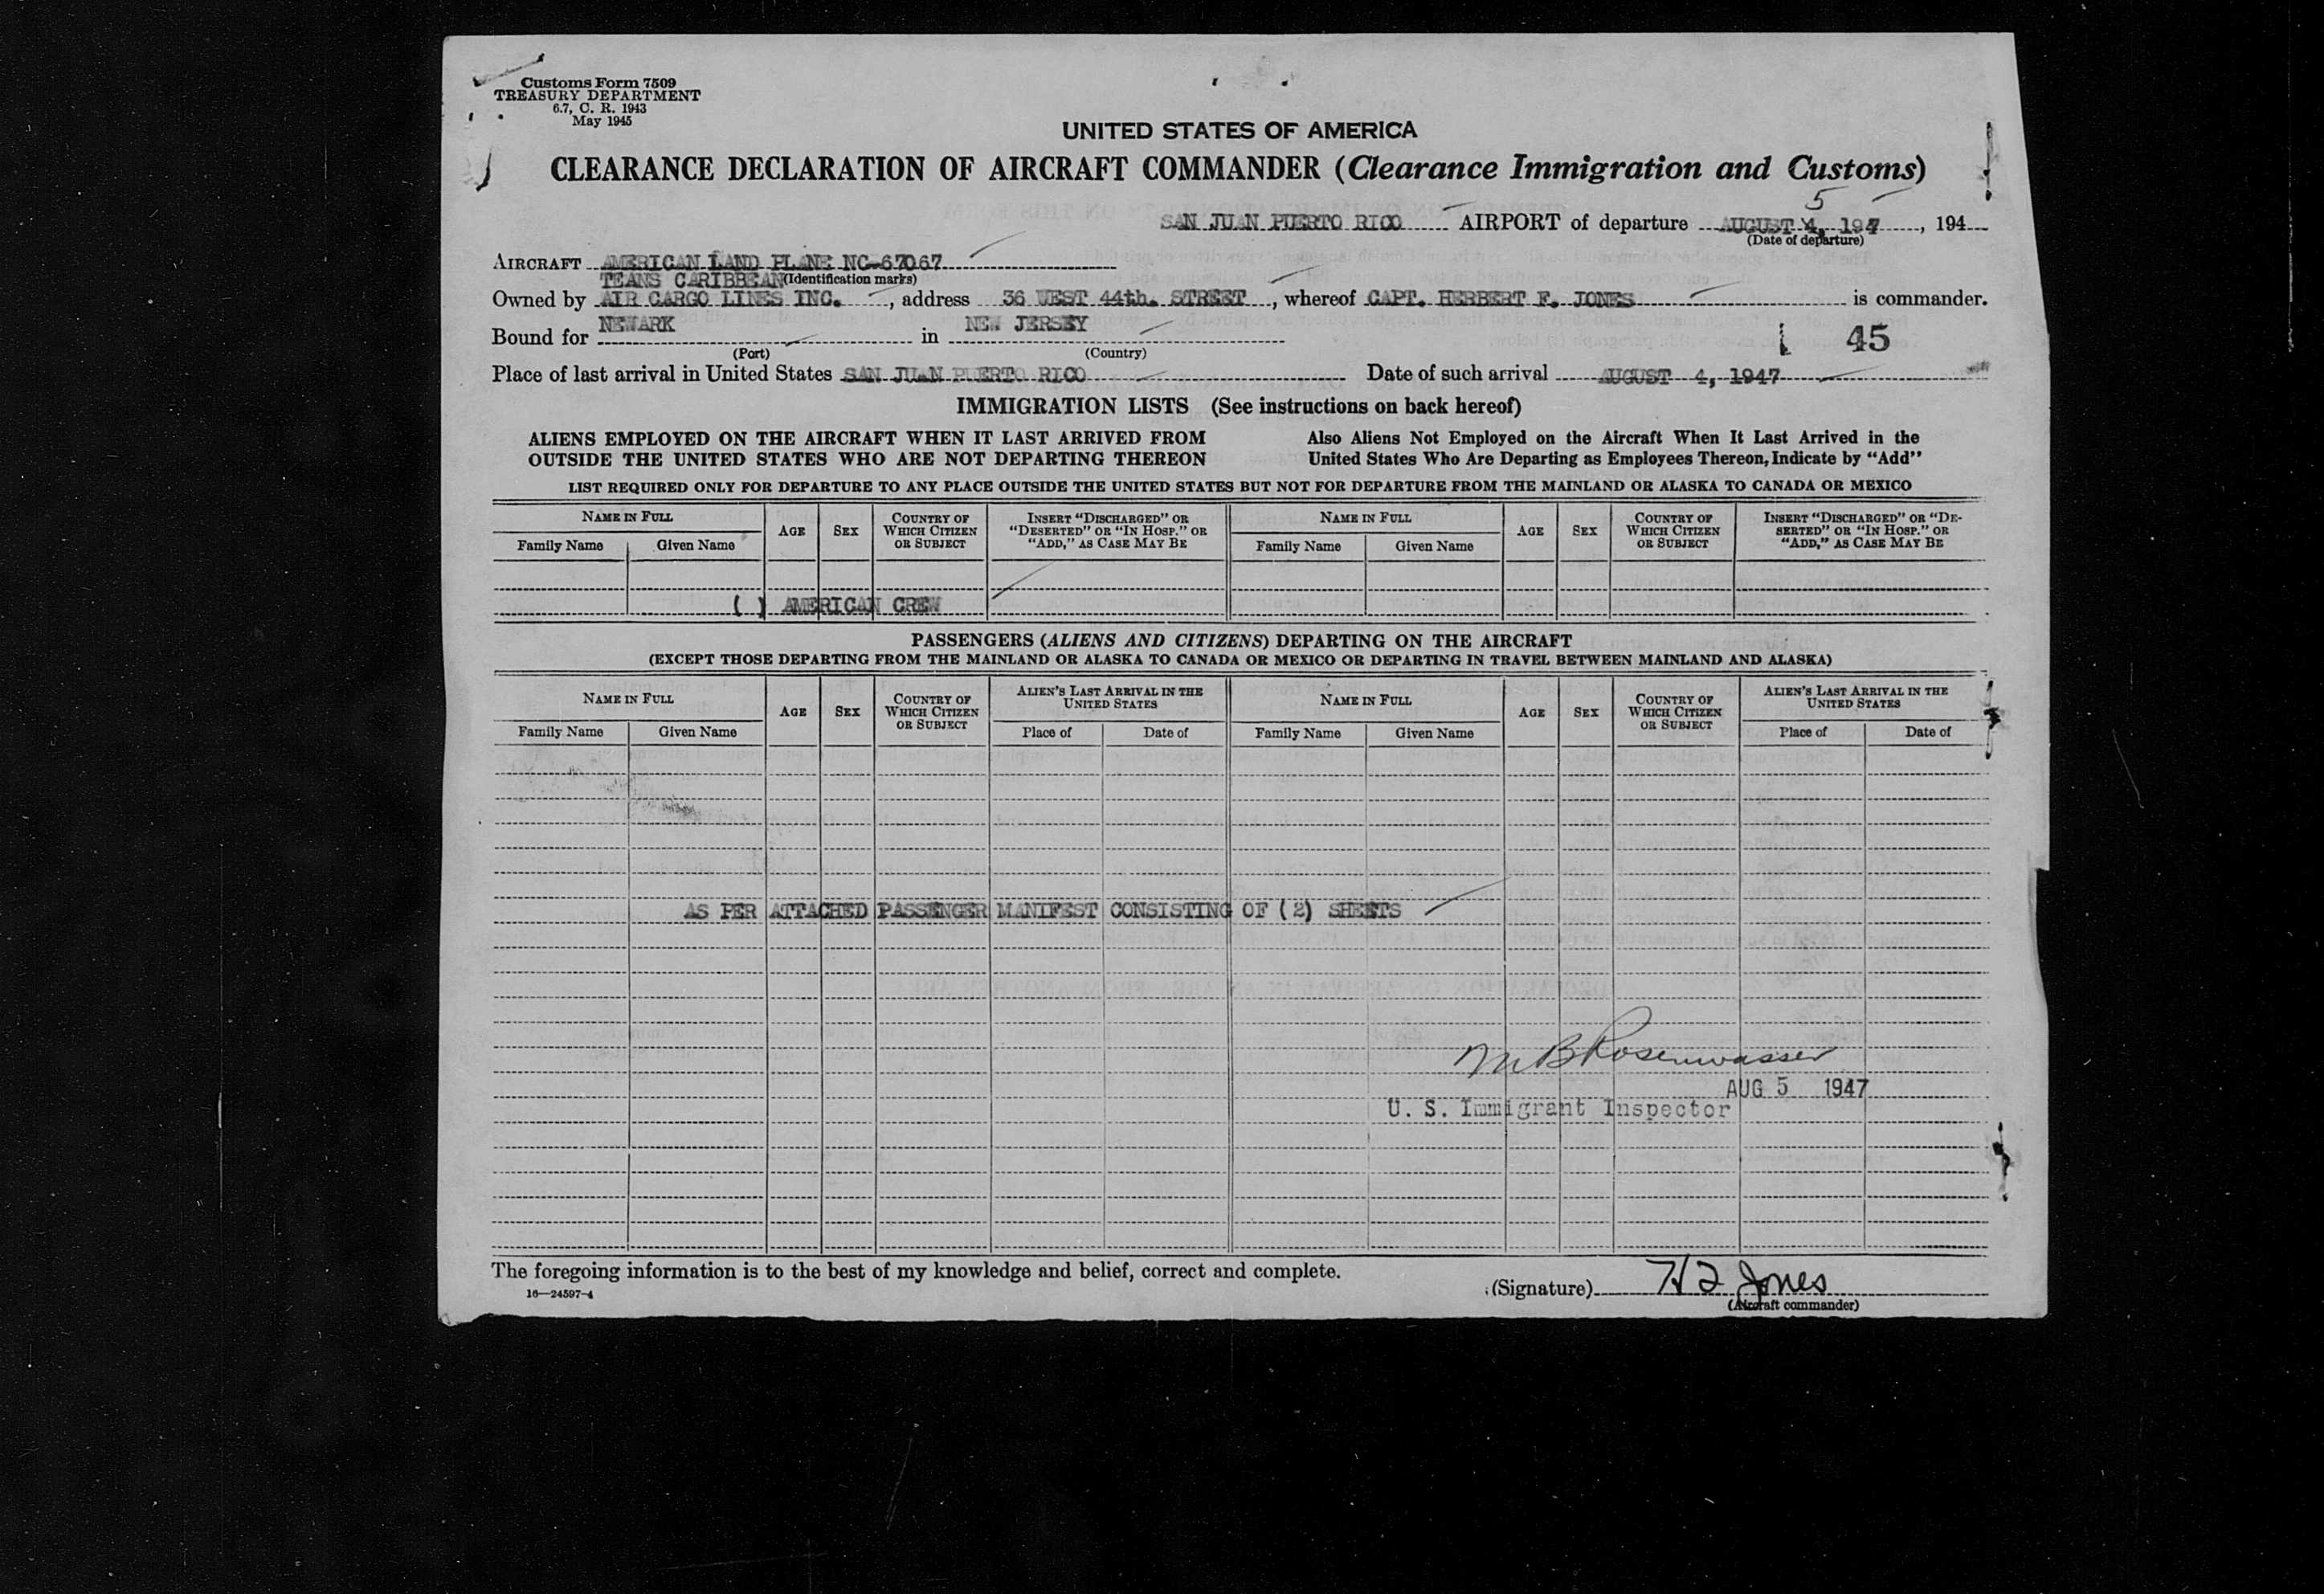 Customs Form 7509
TREASURY DEPARTMENT
6.7, C. R. 1943
May 1945
UNITED STATES OF AMERICA
CLEARANCE DECLARATION OF AIRCRAFT COMMANDER (Clearance Immigration and Customs)
5
SAN JUAN PUERTO RICO AIRPORT of departure AUGUST 4, 1947, 194
(Date of departure)
AIRCRAFT AMERICAN LAND PLANE NC-67067
TEANS CARIBBEAN (Identification marks)
Owned by AIR CARGO LINES INC. , address 36 WEST 44th. STREET , whereof CAPT. HERBERT F. JONES is commander.
Bound for NEWARK in NEW JERSEY 45
(Port) (Country)
Place of last arrival in United States SAN JUAN PUERTO RICO Date of such arrival AUGUST 4, 1947
IMMIGRATION LISTS (See instructions on back hereof)
ALIENS EMPLOYED ON THE AIRCRAFT WHEN IT LAST ARRIVED FROM
OUTSIDE THE UNITED STATES WHO ARE NOT DEPARTING THEREON
Also Aliens Not Employed on the Aircraft When It Last Arrived in the
United States Who Are Departing as Employees Thereon, Indicate by "Add"
LIST REQUIRED ONLY FOR DEPARTURE TO ANY PLACE OUTSIDE THE UNITED STATES BUT NOT FOR DEPARTURE FROM THE MAINLAND OR ALASKA TO CANADA OR MEXICO
NAME IN FULL
Family Name Given Name
AGE
SEX
COUNTRY OF
WHICH CITIZEN
OR SUBJECT
INSERT "DISCHARGED" OR
"DESERTED" OR "IN HOSP." OR
"ADD," AS CASE MAY BE
NAME IN FULL
Family Name Given Name
AGE
SEX
COUNTRY OF
WHICH CITIZEN
OR SUBJECT
INSERT "DISCHARGED" OR "DE-
SERTED" OR "IN HOSP." OR
"ADD," AS CASE MAY BE
( ) AMERICAN CREW
PASSENGERS (ALIENS AND CITIZENS) DEPARTING ON THE AIRCRAFT
(EXCEPT THOSE DEPARTING FROM THE MAINLAND OR ALASKA TO CANADA OR MEXICO OR DEPARTING IN TRAVEL BETWEEN MAINLAND AND ALASKA)
NAME IN FULL
Family Name Given Name
AGE
SEX
COUNTRY OF
WHICH CITIZEN
OR SUBJECT
ALIEN'S LAST ARRIVAL IN THE
UNITED STATES
Place of Date of
NAME IN FULL
Family Name Given Name
AGE
SEX
COUNTRY OF
WHICH CITIZEN
OR SUBJECT
ALIEN'S LAST ARRIVAL IN THE
UNITED STATES
Place of Date of
AS PER ATTACHED PASSENGER MANIFEST CONSISTING OF (2) SHEETS
M B Rosenwasser
AUG 5 1947
U. S. Immigrant Inspector
The foregoing information is to the best of my knowledge and belief, correct and complete.
16—24597-4
(Signature) H F Jones
(Aircraft commander)